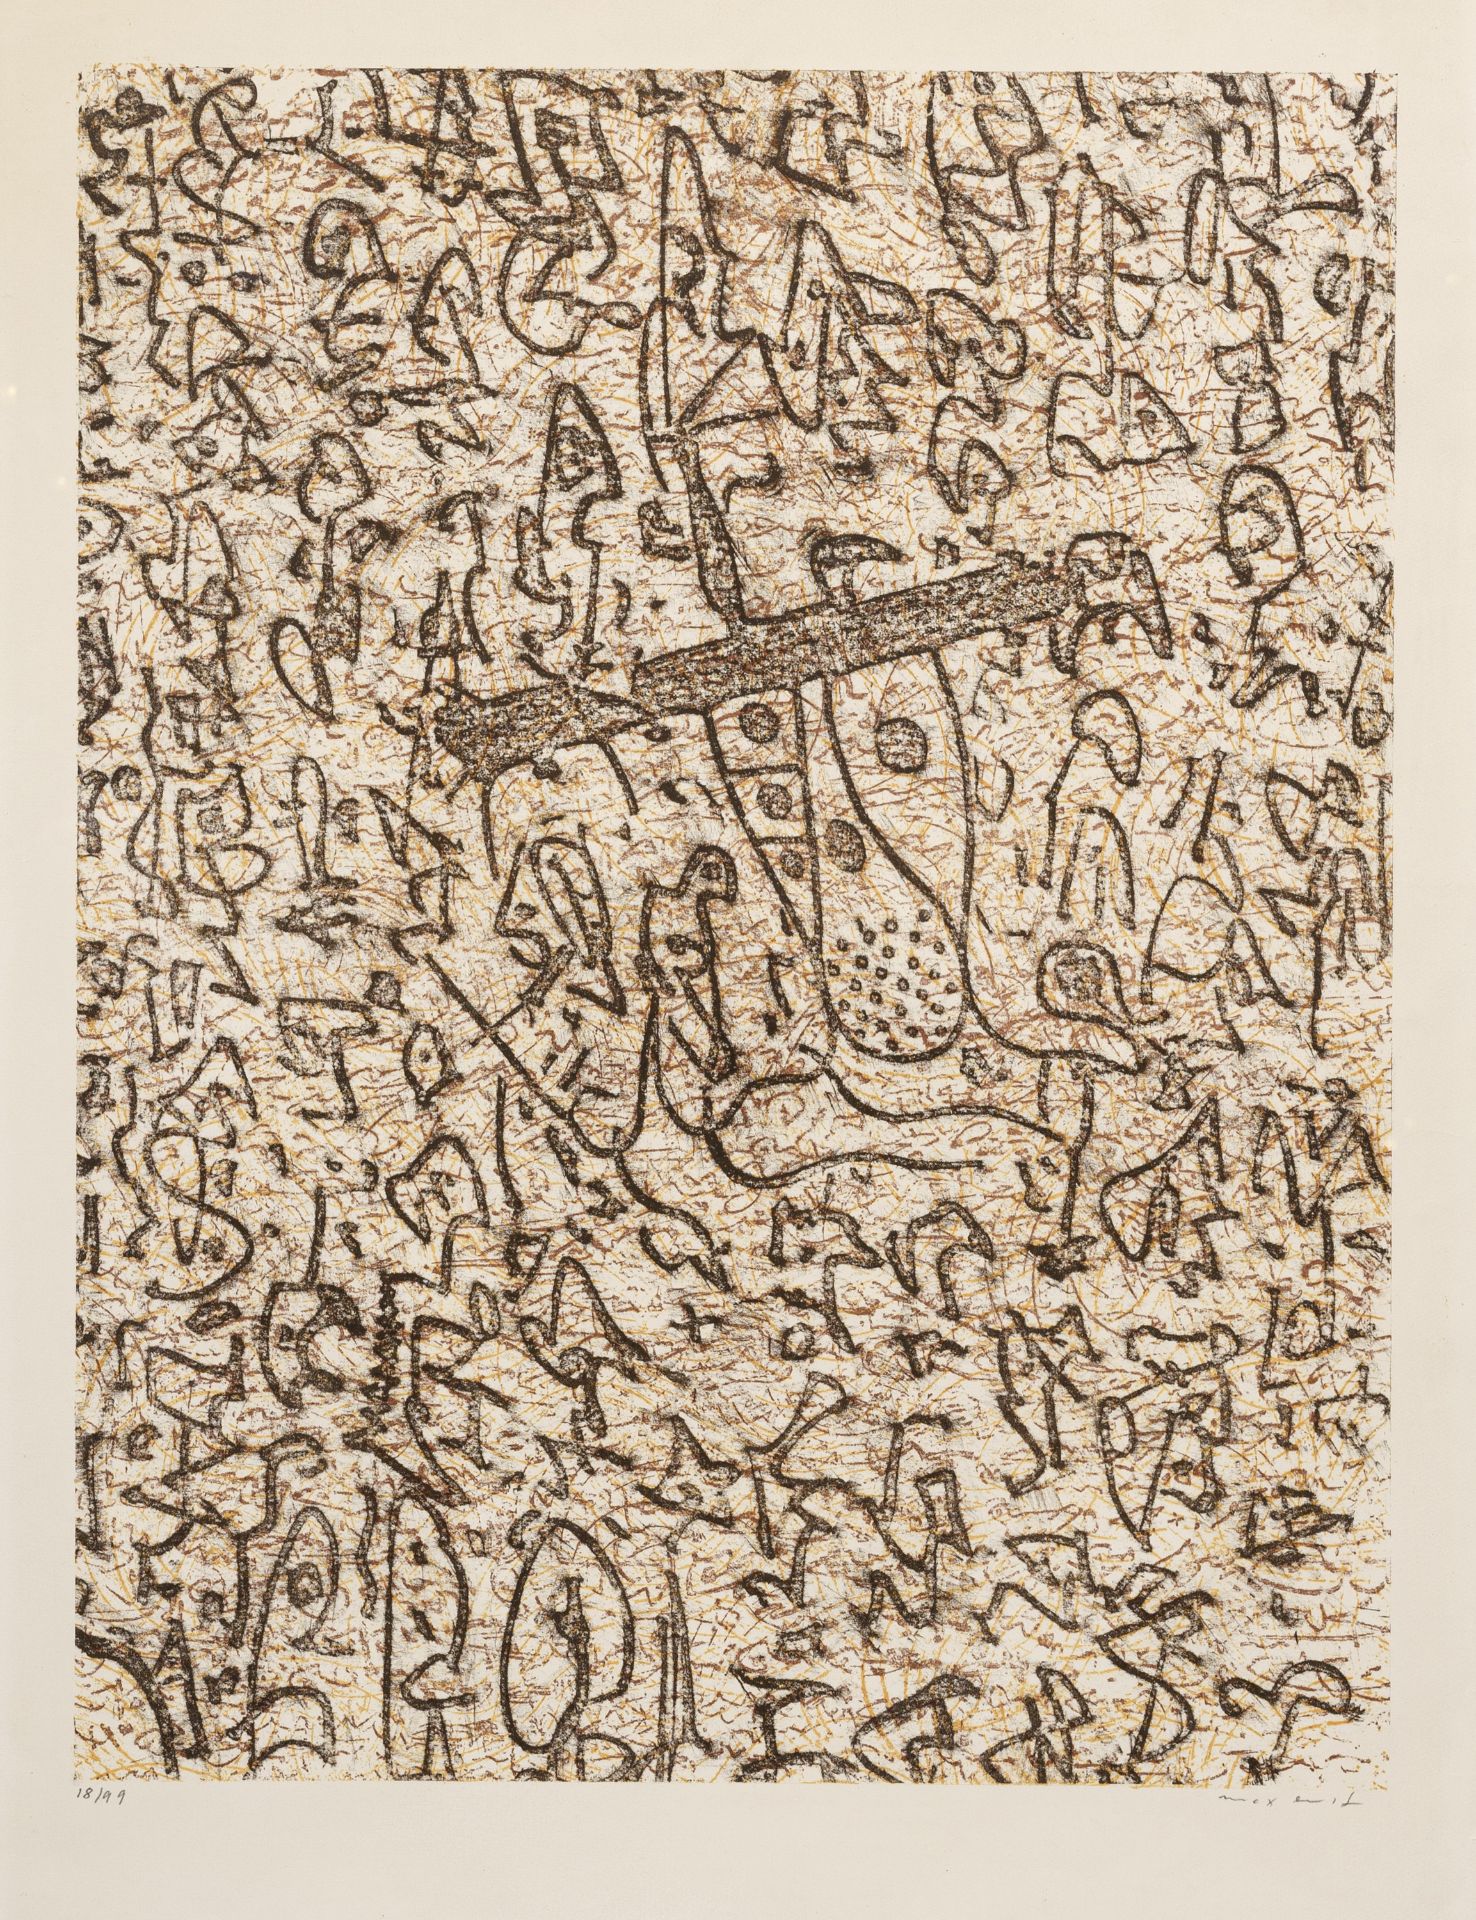 18/99
max ernst